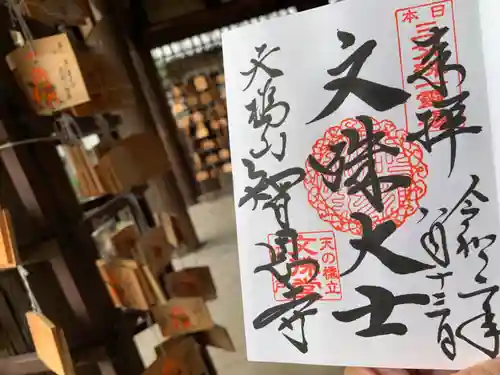 奉拝
令和二年
八月十三日
文殊大士
天橋山
智恩寺
日本
天の橋立
文殊堂